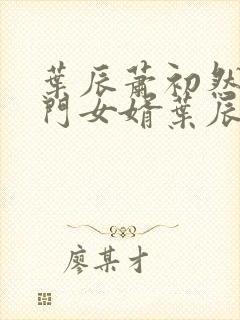 葉辰蕭初然
門女婿葉辰
廖某才